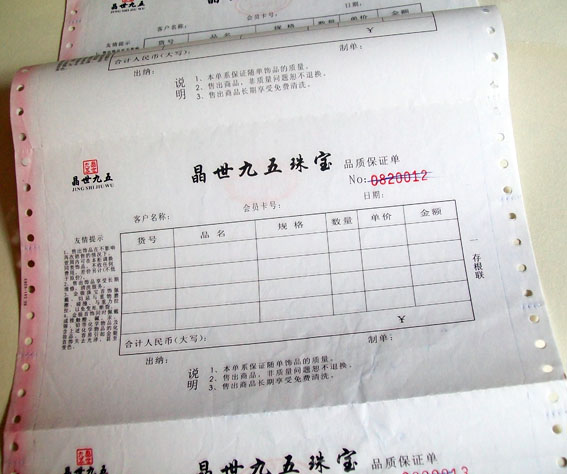 晶世九五
JING SHI JIU WU
友情提示
客户名称:
会员卡号:
日期:
货号 品名 规格 数量 单价 金额
¥
合计人民币(大写):
出纳: 制单:
说明
1、本单系保证随单饰品的质量。
2、售出商品,非质量问题恕不退换。
3、售出商品长期享受免费清洗。
晶世九五
JING SHI JIU WU
晶世九五珠宝 品质保证单
No: 0820012
客户名称: 会员卡号: 日期:
友情提示
货号 品名 规格 数量 单价 金额
一 存根联
¥
合计人民币(大写):
出纳: 制单:
说明
1、本单系保证随单饰品的质量。
2、售出商品,非质量问题恕不退换。
3、售出商品长期享受免费清洗。
晶世九五珠宝 品质保证单